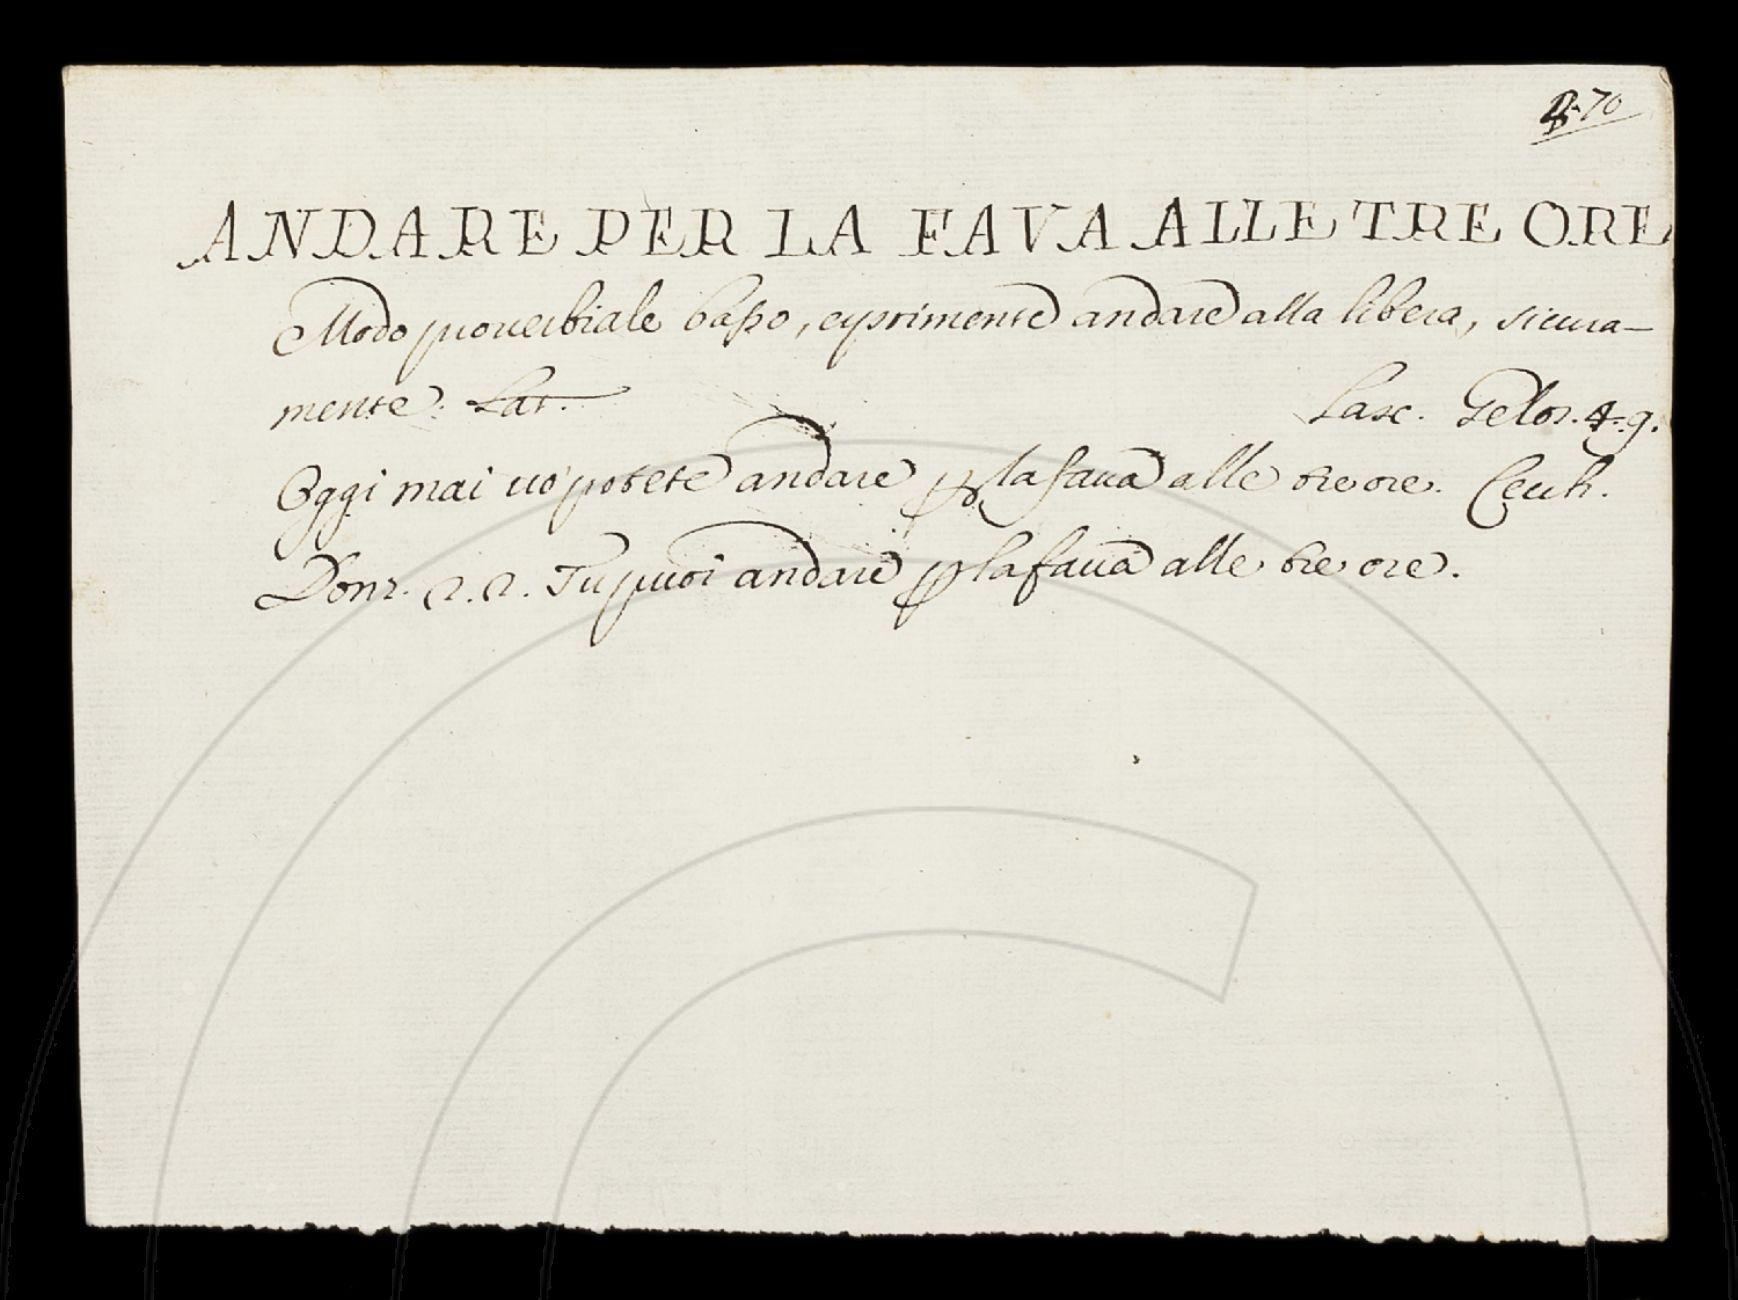 70
ANDARE PER LA FAVA ALLE TRE ORE
Modo proverbiale basso, esprimente andare alla libera, sicura-
mente. Lat. Lasc. Gelos. 4. 9.
Oggi mai vo' potete andare p la fava alle tre ore. Cecch.
Donz. 2. 2. Tu puoi andare p la fava alle tre ore.